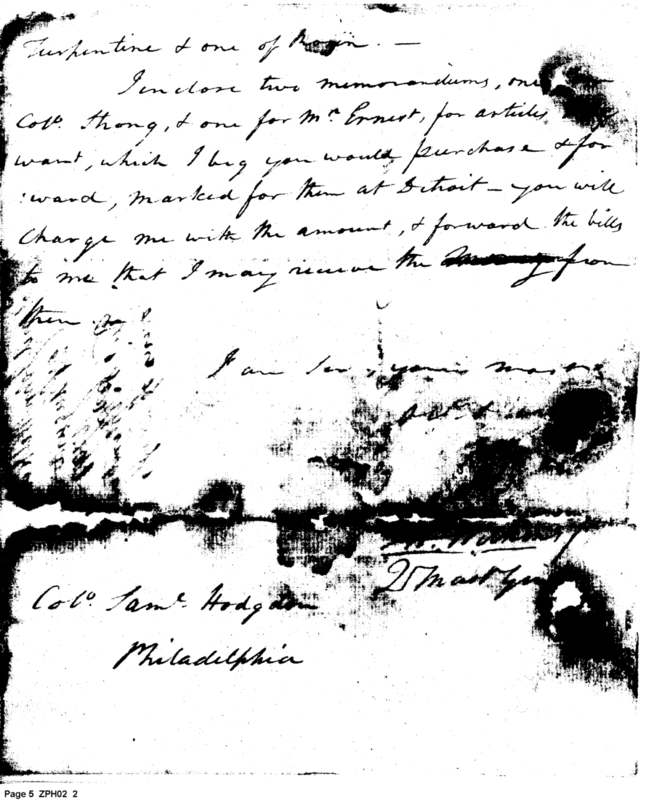 Turpentine & one of Rosin. —
I enclose two memorandums, one
Colo. Strong, & one for Mr. Ernest, for articles
want, which I beg you would purchase & for
:ward, marked for them at Detroit – you will
Charge me with the amount, & forward the bills
to me that I may receive the from
them
I am Sir, your most
Colo. Saml. Hodgdon
Philadelphia
Page 5 ZPH02 2